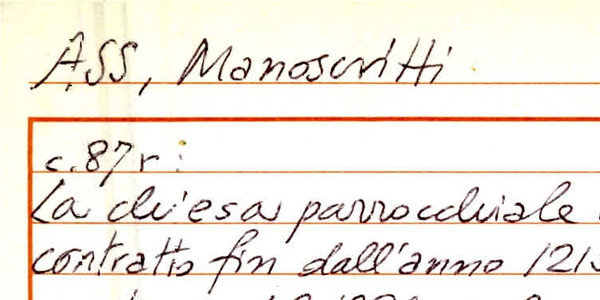 ASS, Manoscritti
c. 87 r:
La chiesa parrocchiale
contratto fin dall'anno